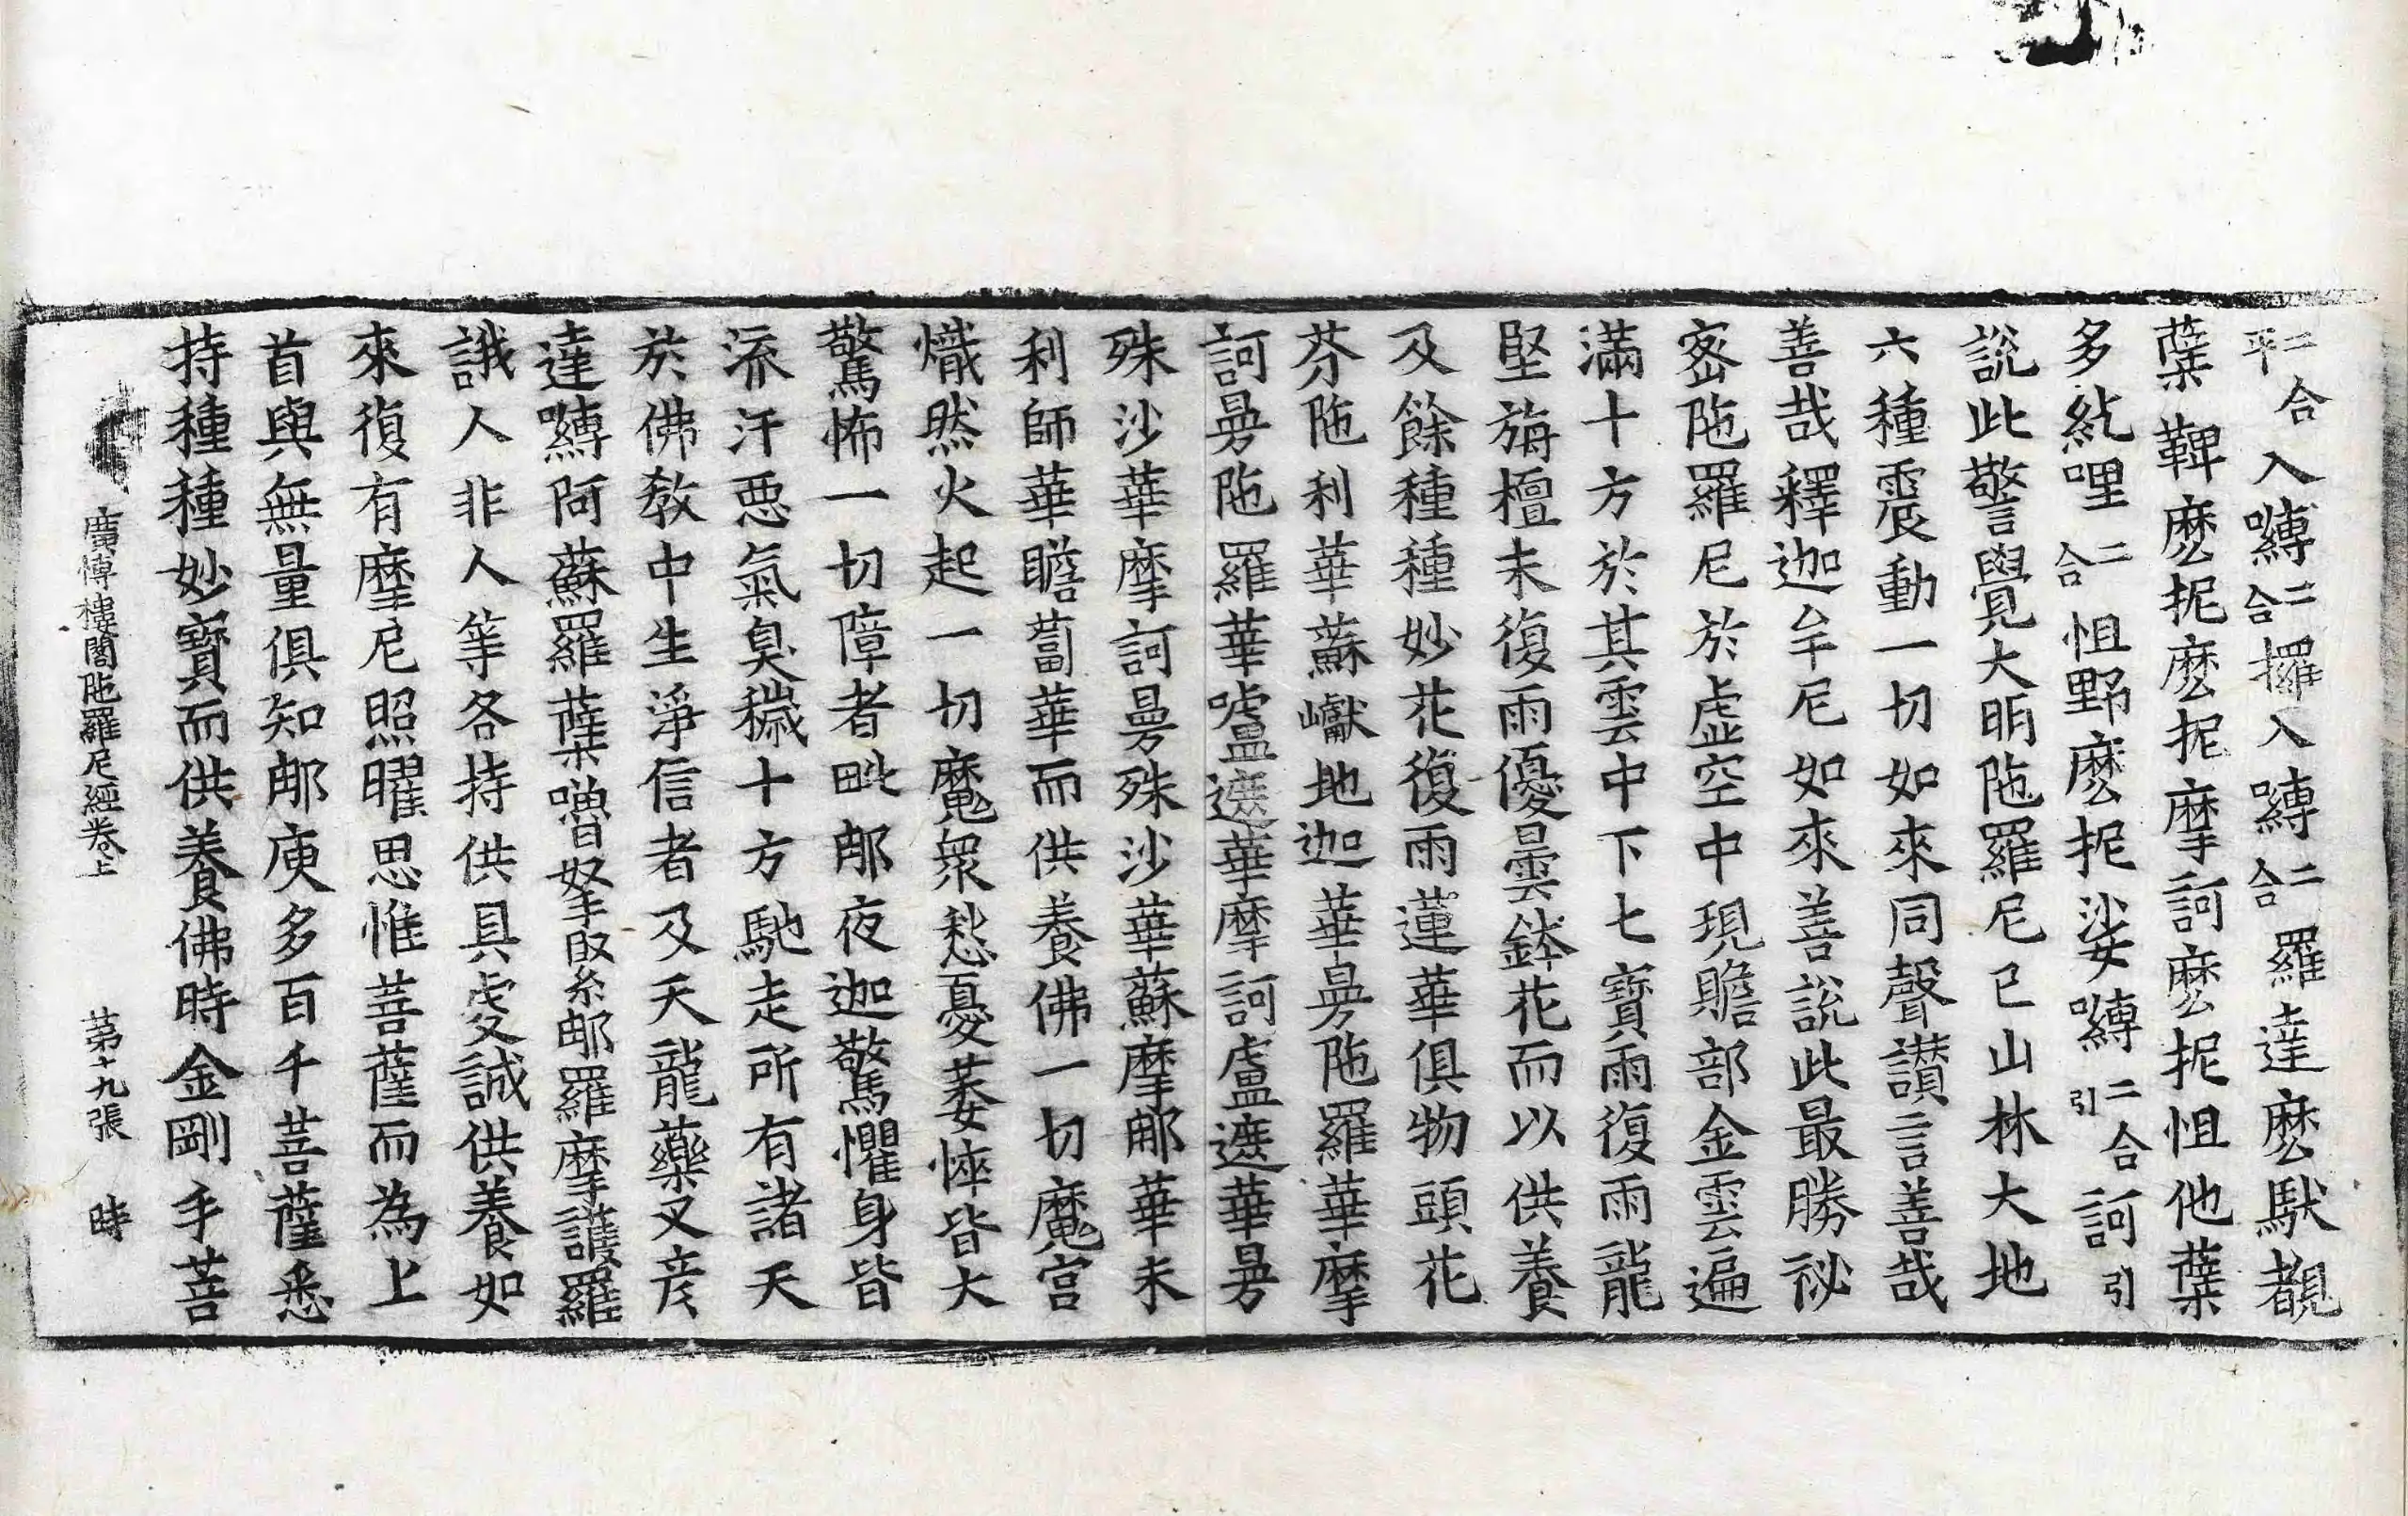 二合平入嚩二合攞入嚩二合羅達麽馱覩
蘖鞞麽抳麽抳摩訶麽抳怛他蘖
多紇哩二合怛野麽抳娑嚩二合引訶引
說此警覺大明陁羅尼已山林大地
六種震動一切如來同聲讃言善哉
善哉釋迦牟尼如來善說此最勝祕
密陁羅尼於虛空中現贍部金雲遍
滿十方於其雲中下七寶雨復雨龍
堅旃檀末復雨優曇鉢花而以供養
及餘種種妙花復雨蓮華俱物頭花
芬陁利華蘇巘地迦華曼陁羅華摩
訶曼陁羅華嚧遮華摩訶盧遮華曼
殊沙華摩訶曼殊沙華蘇摩那華末
利師華瞻蔔華而供養佛一切魔宫
熾然火起一切魔衆愁憂萎悴皆大
驚怖一切障者毗那夜迦驚懼身皆
流汗惡氣臭穢十方馳走所有諸天
於佛教中生淨信者及天龍藥叉彦
達嚩阿蘇羅蘖嚕拏緊那羅摩護羅
誐人非人等各持供具虔誠供養如
來復有摩尼照曜思惟菩薩而為上
首與無量俱知那庾多百千菩薩悉
持種種妙寶而供養佛時金剛手菩
廣博樓閣陁羅尼經卷上 第十九張 時